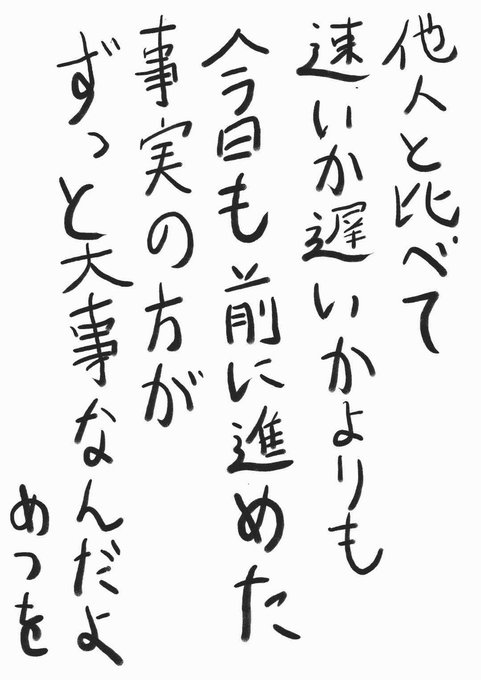 他人と比べて
速いか遅いかよりも
今日も前に進めた
事実の方が
ずっと大事なんだよ
めつを